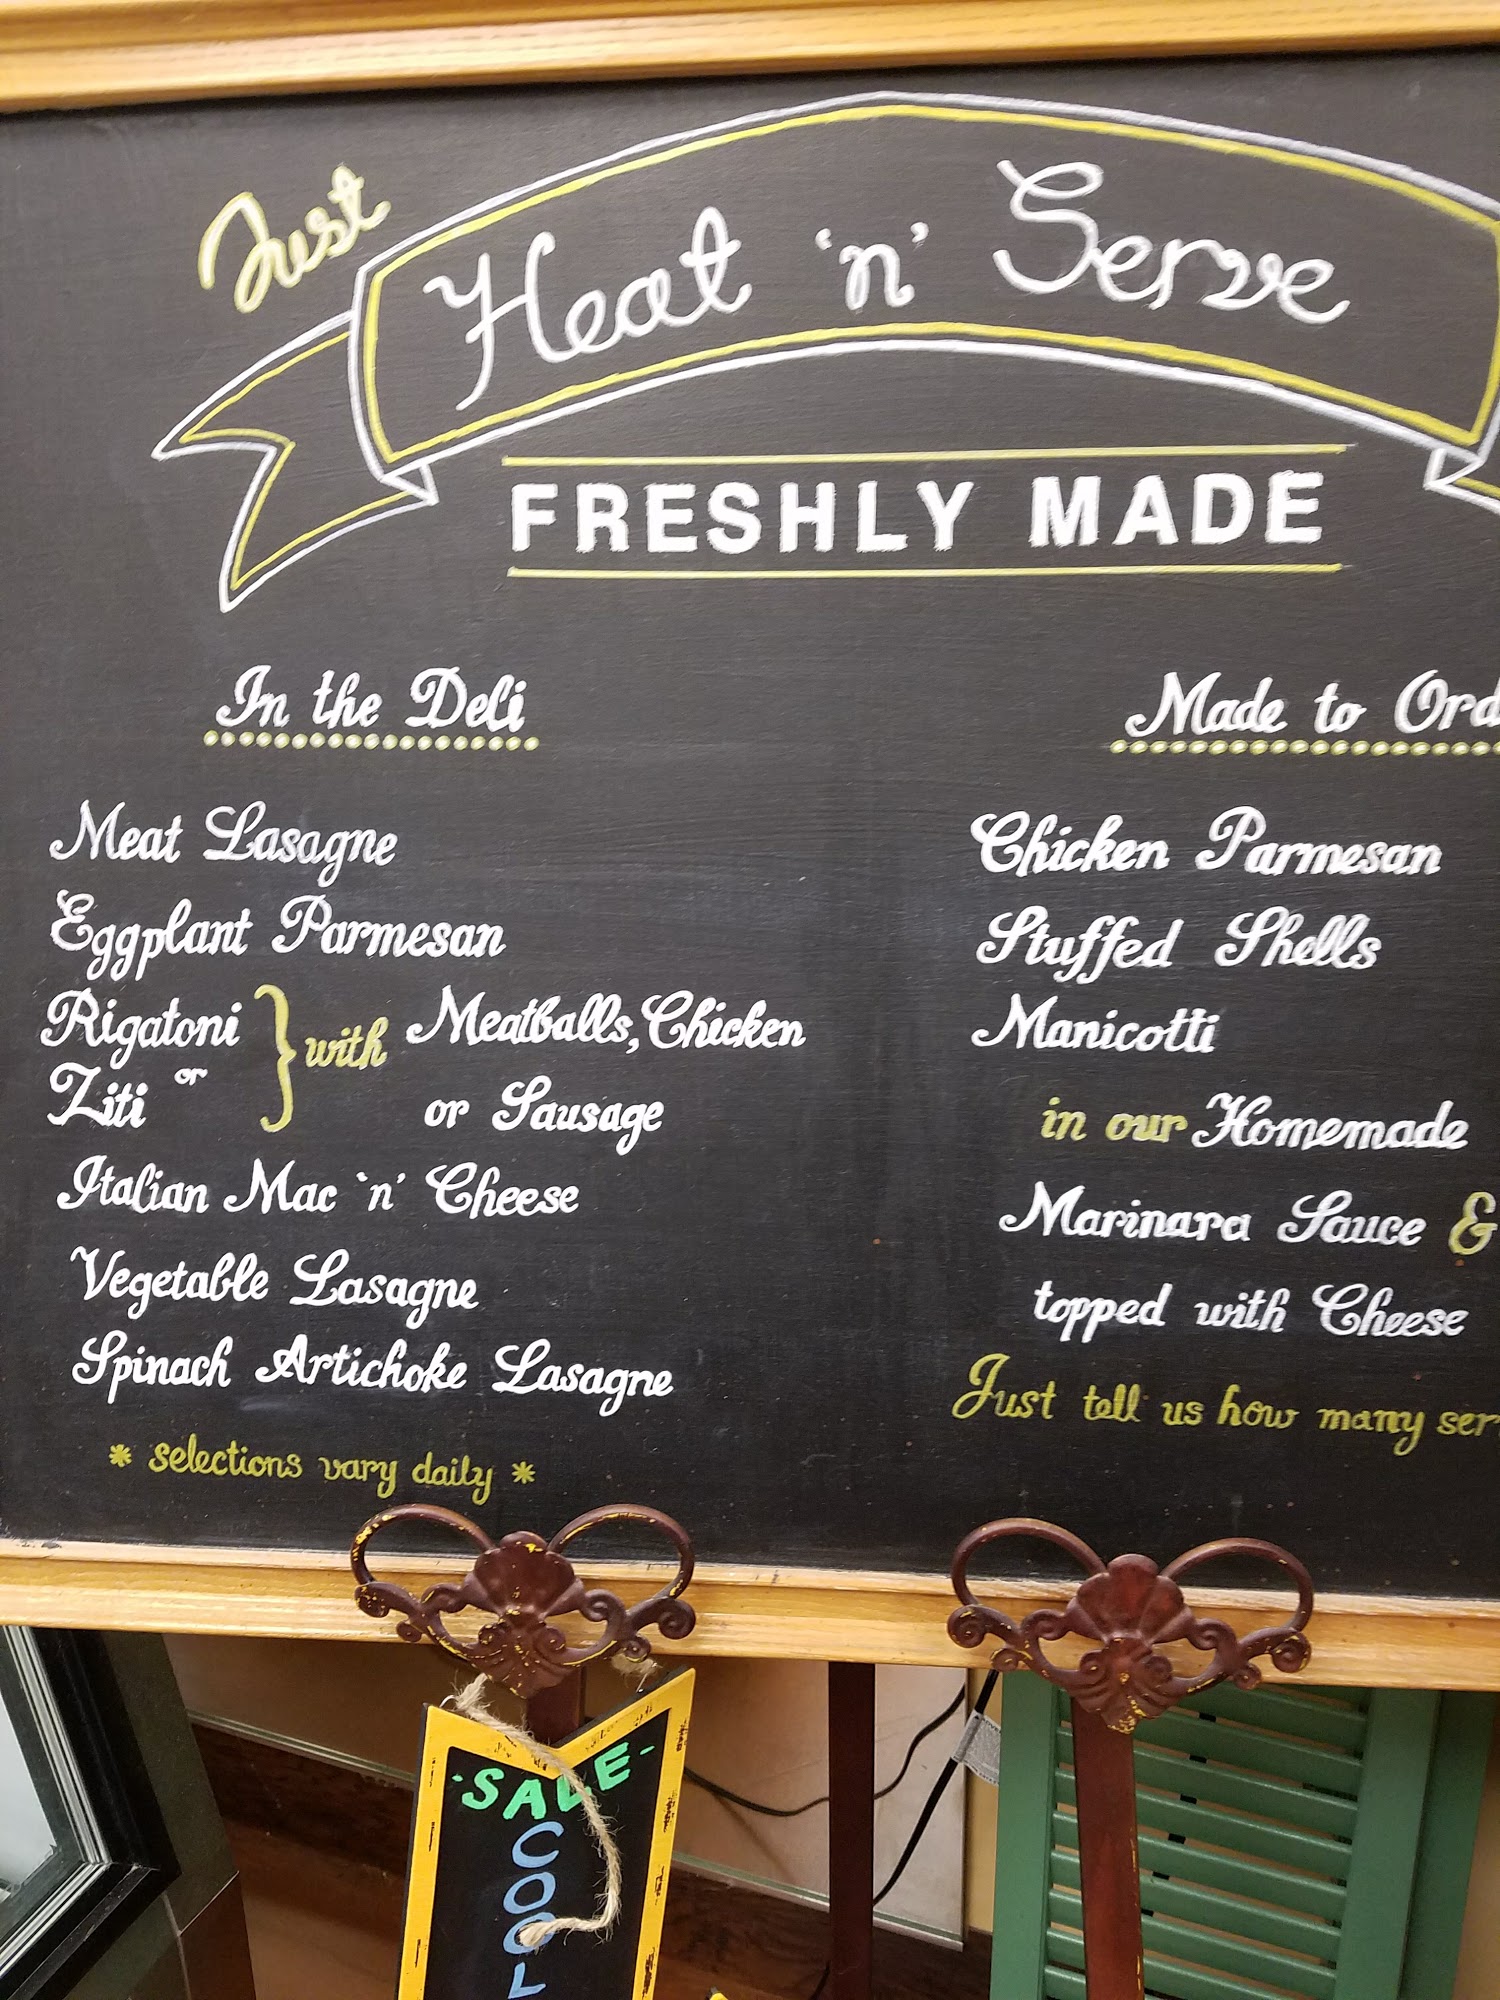 Just
Heat 'n' Serve
FRESHLY MADE
In the Deli
Meat Lasagne
Eggplant Parmesan
Rigatoni
or
Ziti
} with Meatballs, Chicken
or Sausage
Italian Mac 'n' Cheese
Vegetable Lasagne
Spinach Artichoke Lasagne
* selections vary daily *
Made to Ord
Chicken Parmesan
Stuffed Shells
Manicotti
in our Homemade
Marinara Sauce &
topped with Cheese
Just tell us how many ser
·SALE·
COOL